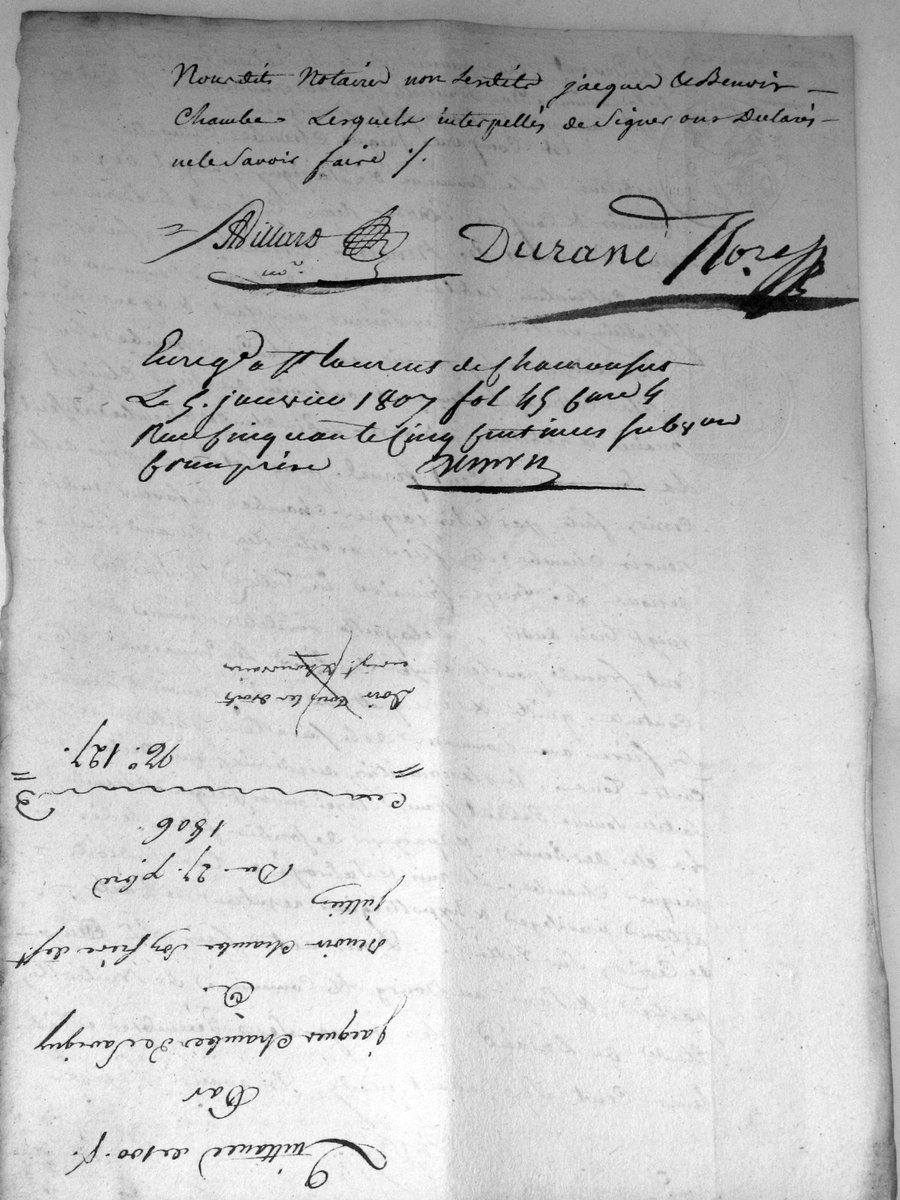 Nousdits Notaires non Lesdits jacques & Benoir
Chambe Lesquels interpellés de Signer ont Déclarés
nele Savoir faire ./.
Billard
Durand
Enregé a St laurent de Chamousset
Le 5. janvier 1807 fol 45 Case 4
Recu Cinquante Cinq Centimes Subvon
Comprise
Quittance de 100 f.
Par
jacques Chambe de Savigny
A
Benoir Chambe Son frère de St
jullien
Du 27. 7bre
1806.
No. 127.